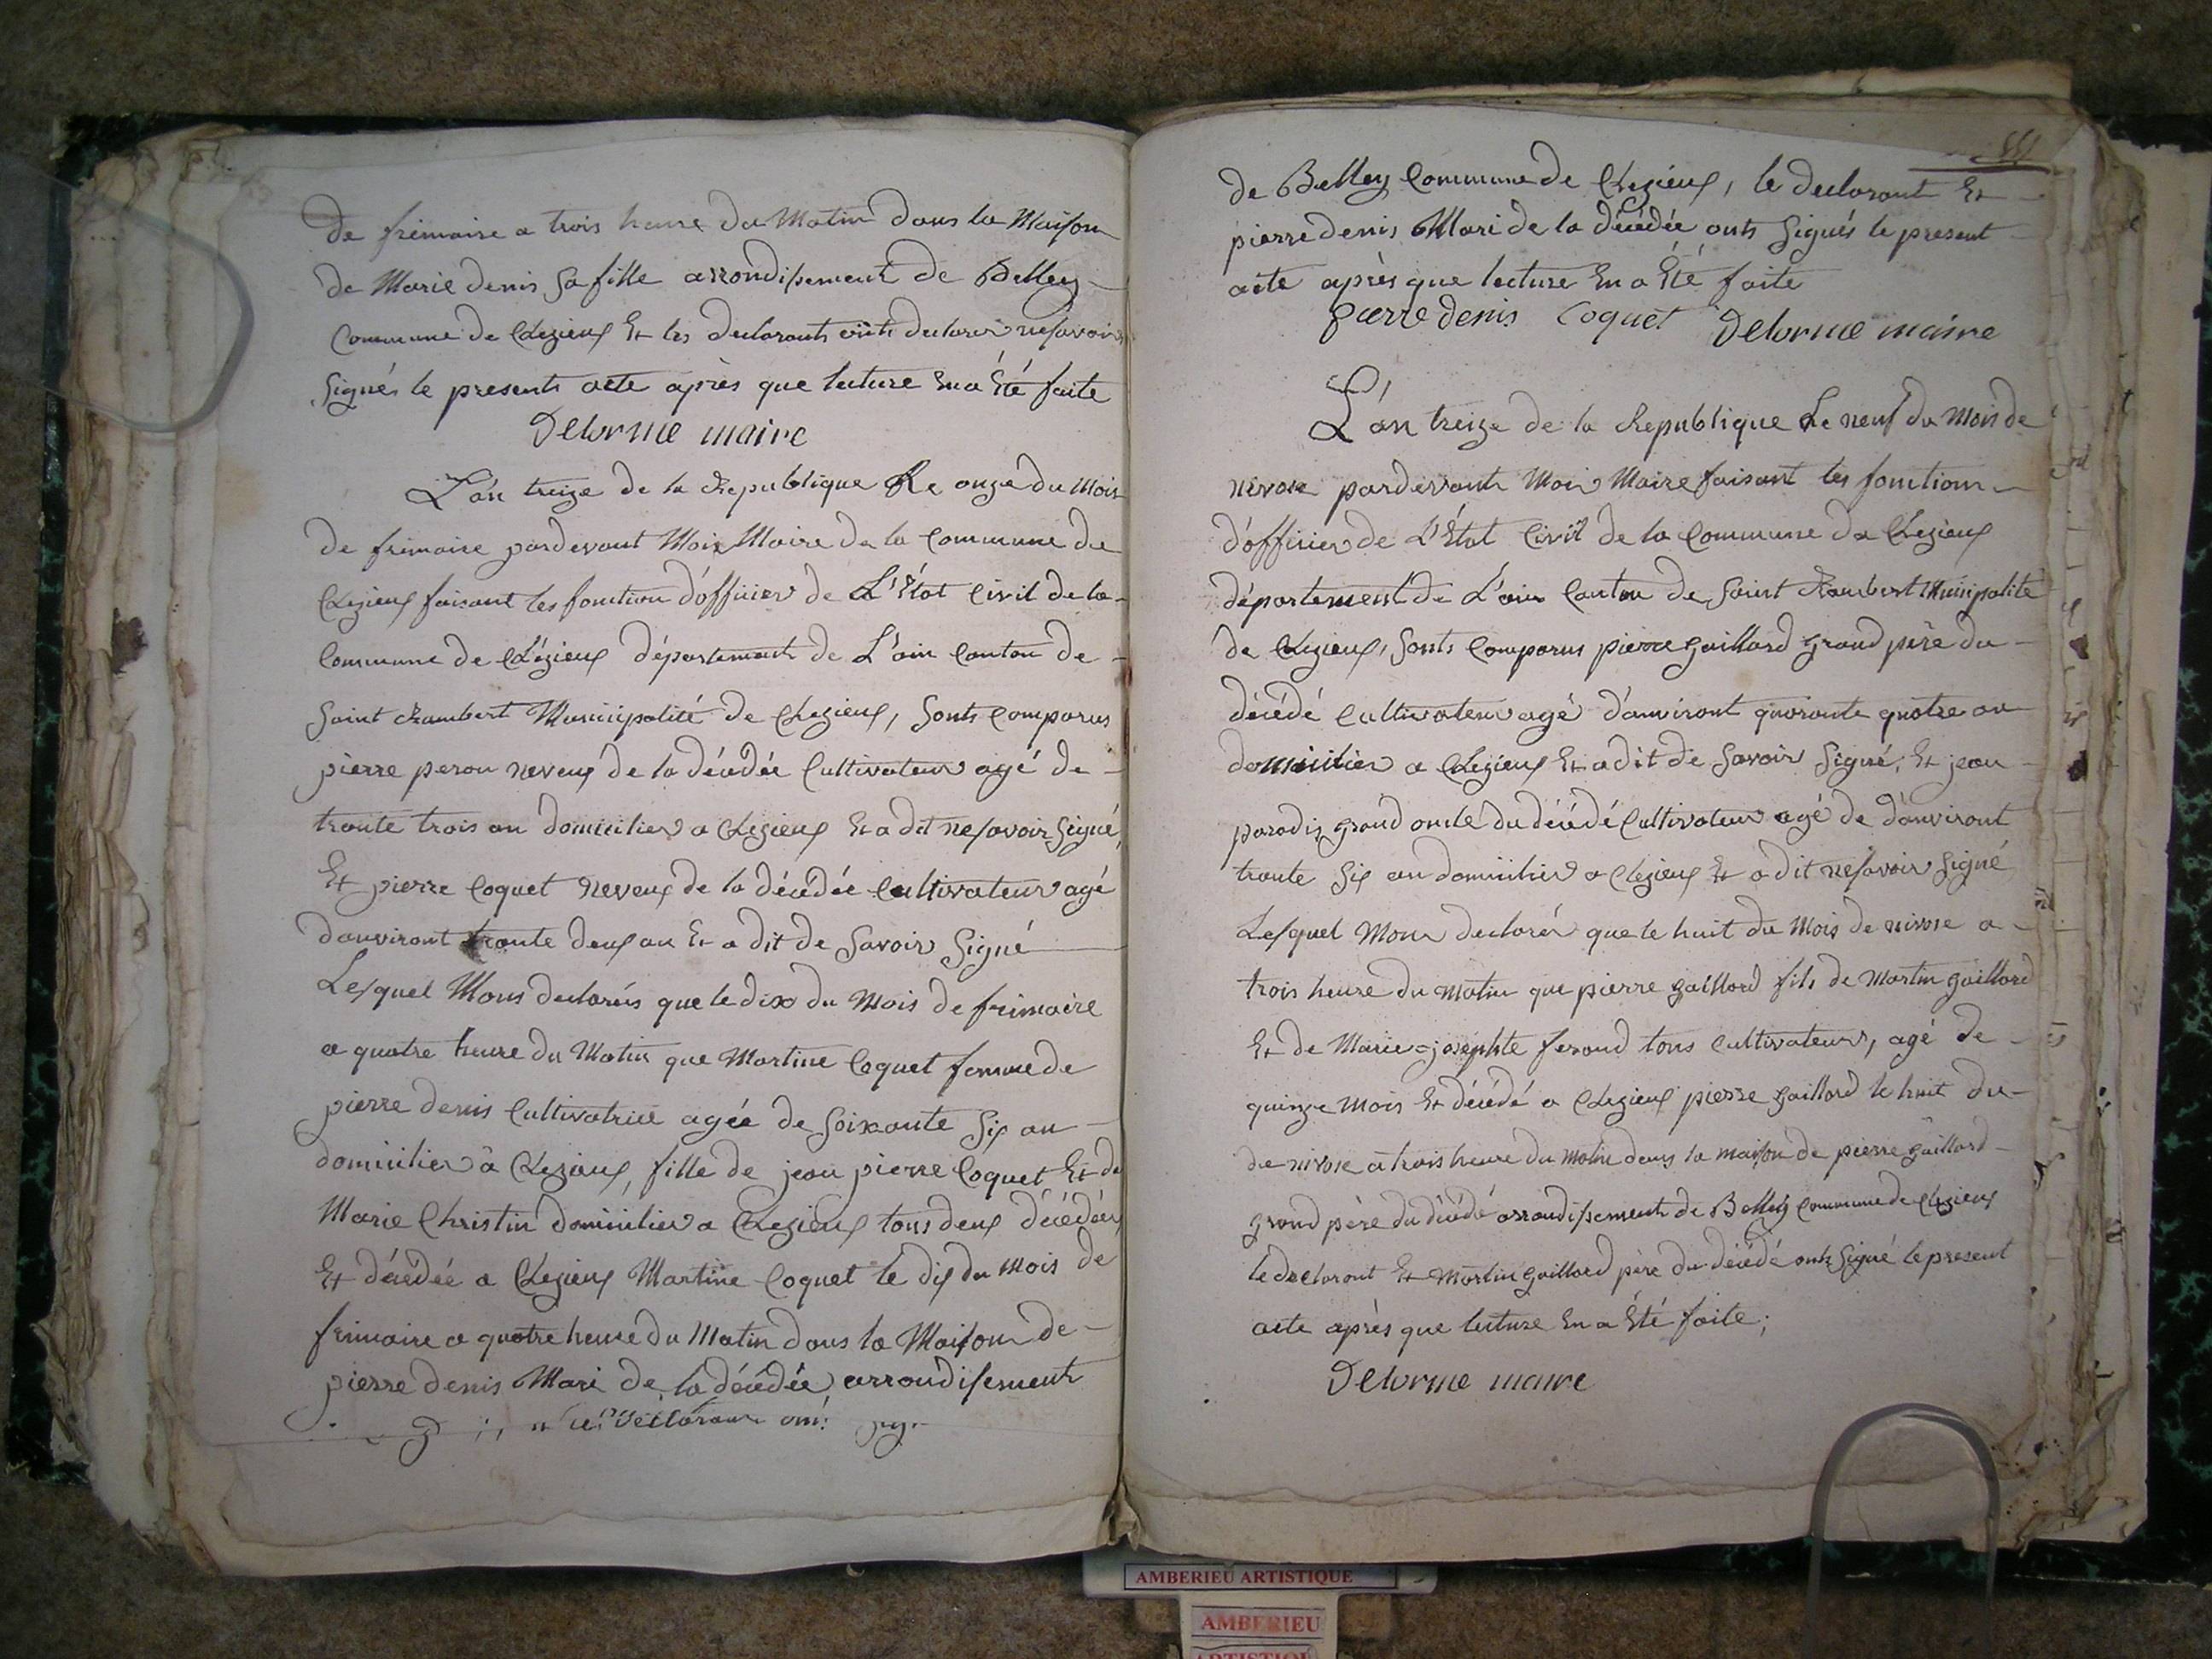 De frimaire a trois heure du Matin dans la Maison
de Marie denis sa fille arrondisement de Belley
Commune de Clezieux Et les declarants onts declarer ne savoir
signés le presents acte après que lecture En a Été faite
Delorme maire
L'an treize de la Republique Le onze du Mois
de frimaire pardevant Moi Maire de la Commune de
Clezieux faisant les fonction d'officier de L'État Civil de la
Commune de Clézieux département de L'ain Canton de
Saint Rambert Municipalité de Clezieux, sonts Comparus
pierre peron neveux de la décédée Cultivateur agé de
trante trois an domicilier a Clezieux Et a dit ne savoir signé,
Et pierre Coquet neveux de la décédée Cultivateur agé
danviront trante deux an Et a dit de savoir signé
Lesquel Mons declarés que le dix du Mois de frimaire
a quatre heure du Matin que Martine Coquet femme de
pierre denis Cultivatrice agée de soixante six an
domicilier à Clezieux, fille de jean pierre Coquet Et de
Marie Christin domicilier a Clezieux tous deux décédés
Et décédée a Clezieux Martine Coquet le dix du Mois de
frimaire a quatre heure du Matin dans la Maison de
pierre denis Mari de la décédée arrondisement
de Belley Commune de Clezieux, le declarant Et
pierre denis Mari de la décédée onts signés le present
acte après que lecture En a Été faite
pierre denis Coquet Delorme maire
L'an treize de la Republique Le neuf du Mois de
nivose pardevants Moi Maire faisant les fonctions
d'officier de L'État Civil de la Commune de Clezieux
département de L'ain Canton de Saint Rambert Municipalité
de Clezieux, sonts Comparus pierre gaillard grand père du
décédé Cultivateur agé d'anviront quarante quatre an
domicilier a Clezieux Et a dit de savoir signé, Et jean
paradis grand oncle du décédé Cultivateur agé de d'anviront
trante six an domicilier a Clezieux Et a dit ne savoir signé
Lesquel Mons declarés que le huit du Mois de nivose a
trois heure du Matin que pierre gaillard fils de Martin gaillard
Et de Marie josephte ferand tous Cultivateurs, agé de
quinze Mois Et décédé a Clezieux pierre gaillard le huit du
de nivose à trois heure du Matin dans la maison de pierre gaillard
grand père du décédé arrondisements de Belley Commune de Clezieux
le declarant Et Martin gaillard père du décédé onts signé le present
acte après que lecture En a Été faite;
Delorme maire
AMBERIEU ARTISTIQUE
AMBERIEU